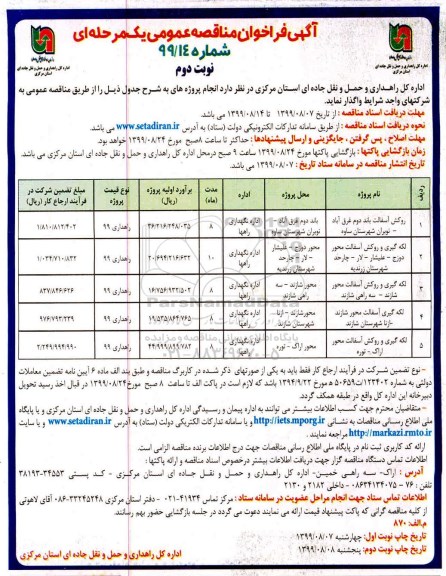 آگهی فراخوان مناقصه عمومی یک مرحله ای
شماره ۹۹/۱۴
نوبت دوم
اداره کل راهداری و حمل و نقل جاده ای استان مرکزی در نظر دارد انجام پروژه های به شرح جدول ذیل را از طریق مناقصه عمومی به
شرکتهای واجد شرایط واگذار نماید.
مهلت دریافت اسناد مناقصه : از تاریخ ۱۳۹۹/۰۸/۰۷ تا ۱۳۹۹/۰۸/۱۴ می باشد.
نحوه دریافت اسناد مناقصه : از طریق سامانه تدارکات الکترونیکی دولت (ستاد) به آدرس www.setadiran.ir می باشد.
مهلت اصلاح ، پس گرفتن ، جایگزینی و ارسال پیشنهادها : حداکثر تا ساعت ۸صبح مورخ ۱۳۹۹/۰۸/۲۴ می باشد.
زمان بازگشایی پاکتها : بازگشایی پاکتها مورخ ۱۳۹۹/۰۸/۲۴ ساعت ۹ صبح درمحل اداره کل راهداری و حمل و نقل جاده ای استان مرکزی می باشد.
تاریخ انتشار مناقصه در سامانه ستاد تاریخ : ۱۳۹۹/۰۸/۰۷ می باشد.
ردیف نام پروژه محل پروژه اداره مدت (ماه) برآورد اولیه پروژه (ریال) نوع قیمت پروژه مبلغ تضمین شرکت در فرآیند ارجاع کار (ریال)
۱ روکش آسفالت باند دوم غرق آباد – نوبران شهرستان ساوه باند دوم غرق آباد – نوبران شهرستان ساوه اداره نگهداری راهها ۸ ۳۶/۲۱۶/۲۴۸/۰۳۵ راهداری ۹۹ ۱/۸۱۰/۸۱۲/۴۰۲
۲ لکه گیری و روکش آسفالت محور دوزج – علیشار – لار – چارحد شهرستان زرندیه محور دوزج – علیشار – لار – چارحد شهرستان زرندیه اداره نگهداری راهها ۱۰ ۲۰/۶۹۴/۲۱۶/۶۳۲ راهداری ۹۹ ۱/۰۳۴/۷۱۰/۸۳۲
۳ لکه گیری و روکش آسفالت محور شازند – سه راهی شازند محور شازند – سه راهی شازند اداره نگهداری راهها ۸ ۱۶/۷۵۶/۹۳۲/۵۰۲ راهداری ۹۹ ۸۳۷/۸۴۶/۶۲۶
۴ لکه گیری و روکش آسفالت محور شازند –ازنا شهرستان شازند محورشازند – ازنا شهرستان شازند اداره نگهداری راهها ۸ ۱۹/۵۳۵/۸۶۴/۷۶۵ راهداری ۹۹ ۹۷۶/۷۹۳/۲۳۹
۵ لکه گیری و روکش آسفالت محور اراک – توره محور اراک – توره اداره نگهداری راهها ۸ ۴۴/۹۹۹/۸۹۹/۷۸۲ راهداری ۹۹ ۲/۲۴۹/۹۹۴/۹۹۰
– نوع تضمین شرکت در فرآیند ارجاع کار فقط باید به یکی از صورتهای ذکر شده در کاربرگ مناقصه و طبق بند الف ماده ۶ آیین نامه تضمین معاملات
دولتی به شماره ۱۲۳۴۰۲/ت۵۰۶۵۹ ه مورخ ۱۳۹۴/۹/۲۲ باشد که لازم است در پاکت الف تا ساعت ۸ صبح مورخ۱۳۹۹/۰۸/۲۴ در قبال اخذ رسید تحویل
دبیرخانه این اداره کل واقع در طبقه همکف گردد.
–متقاضیان محترم جهت کسب اطلاعات بیشتر می توانند به اداره پیمان و رسیدگی اداره کل راهداری و حمل و نقل جاده ای استان مرکزی و یا پایگاه
ملی اطلاع رسانی مناقصات به نشانی http://iets.mporg.ir و یا سامانه تدارکات الکتریکی دولت (ستاد) به آدرس www.setadiran.ir و یا سایت
http://markazi.rmto.ir مراجعه نمایند.
ارائه کد کاربری ثبت نام در پایگاه ملی اطلاع رسانی مناقصات جهت درج اطلاعات برنده مناقصه الزامی است.
اطلاعات تماس دستگاه مناقصه گزار جهت دریافت اطلاعات بیشتر درخصوص اسناد مناقصه و ارائه پاکتها :
آدرس : اراک– سه راهی خمین– اداره کل راهداری و حمل و نقل جاده ای استان مرکزی – کد پستی ۳۴۵۵۳–۳۸۱۹۳
تلفن : ۷۶–۰۸۶۳۴۱۳۴۰۷۵ – داخلی ۲۱۸۲ و ۲۱۳۰
اطلاعات تماس ستاد جهت انجام مراحل عضویت در سامانه ستاد : مرکز تماس ۴۱۹۳۴–۰۲۱ – دفتر استان مرکزی ۳۲۲۴۵۲۴۸–۰۸۶ آقای لاهوتی
از کلیه مناقصه گرانی که پاکت پیشنهاد قیمت ارائه می نمایند دعوت می گردد در جلسه بازگشایی حضور بهم رسانند.
م.الف: ۸۷۰
تاریخ چاپ نوبت اول: چهارشنبه ۱۳۹۹/۰۸/۰۷
تاریخ چاپ نوبت دوم: پنجشنبه ۱۳۹۹/۰۸/۰۸
اداره کل راهداری و حمل و نقل جاده ای استان مرکزی